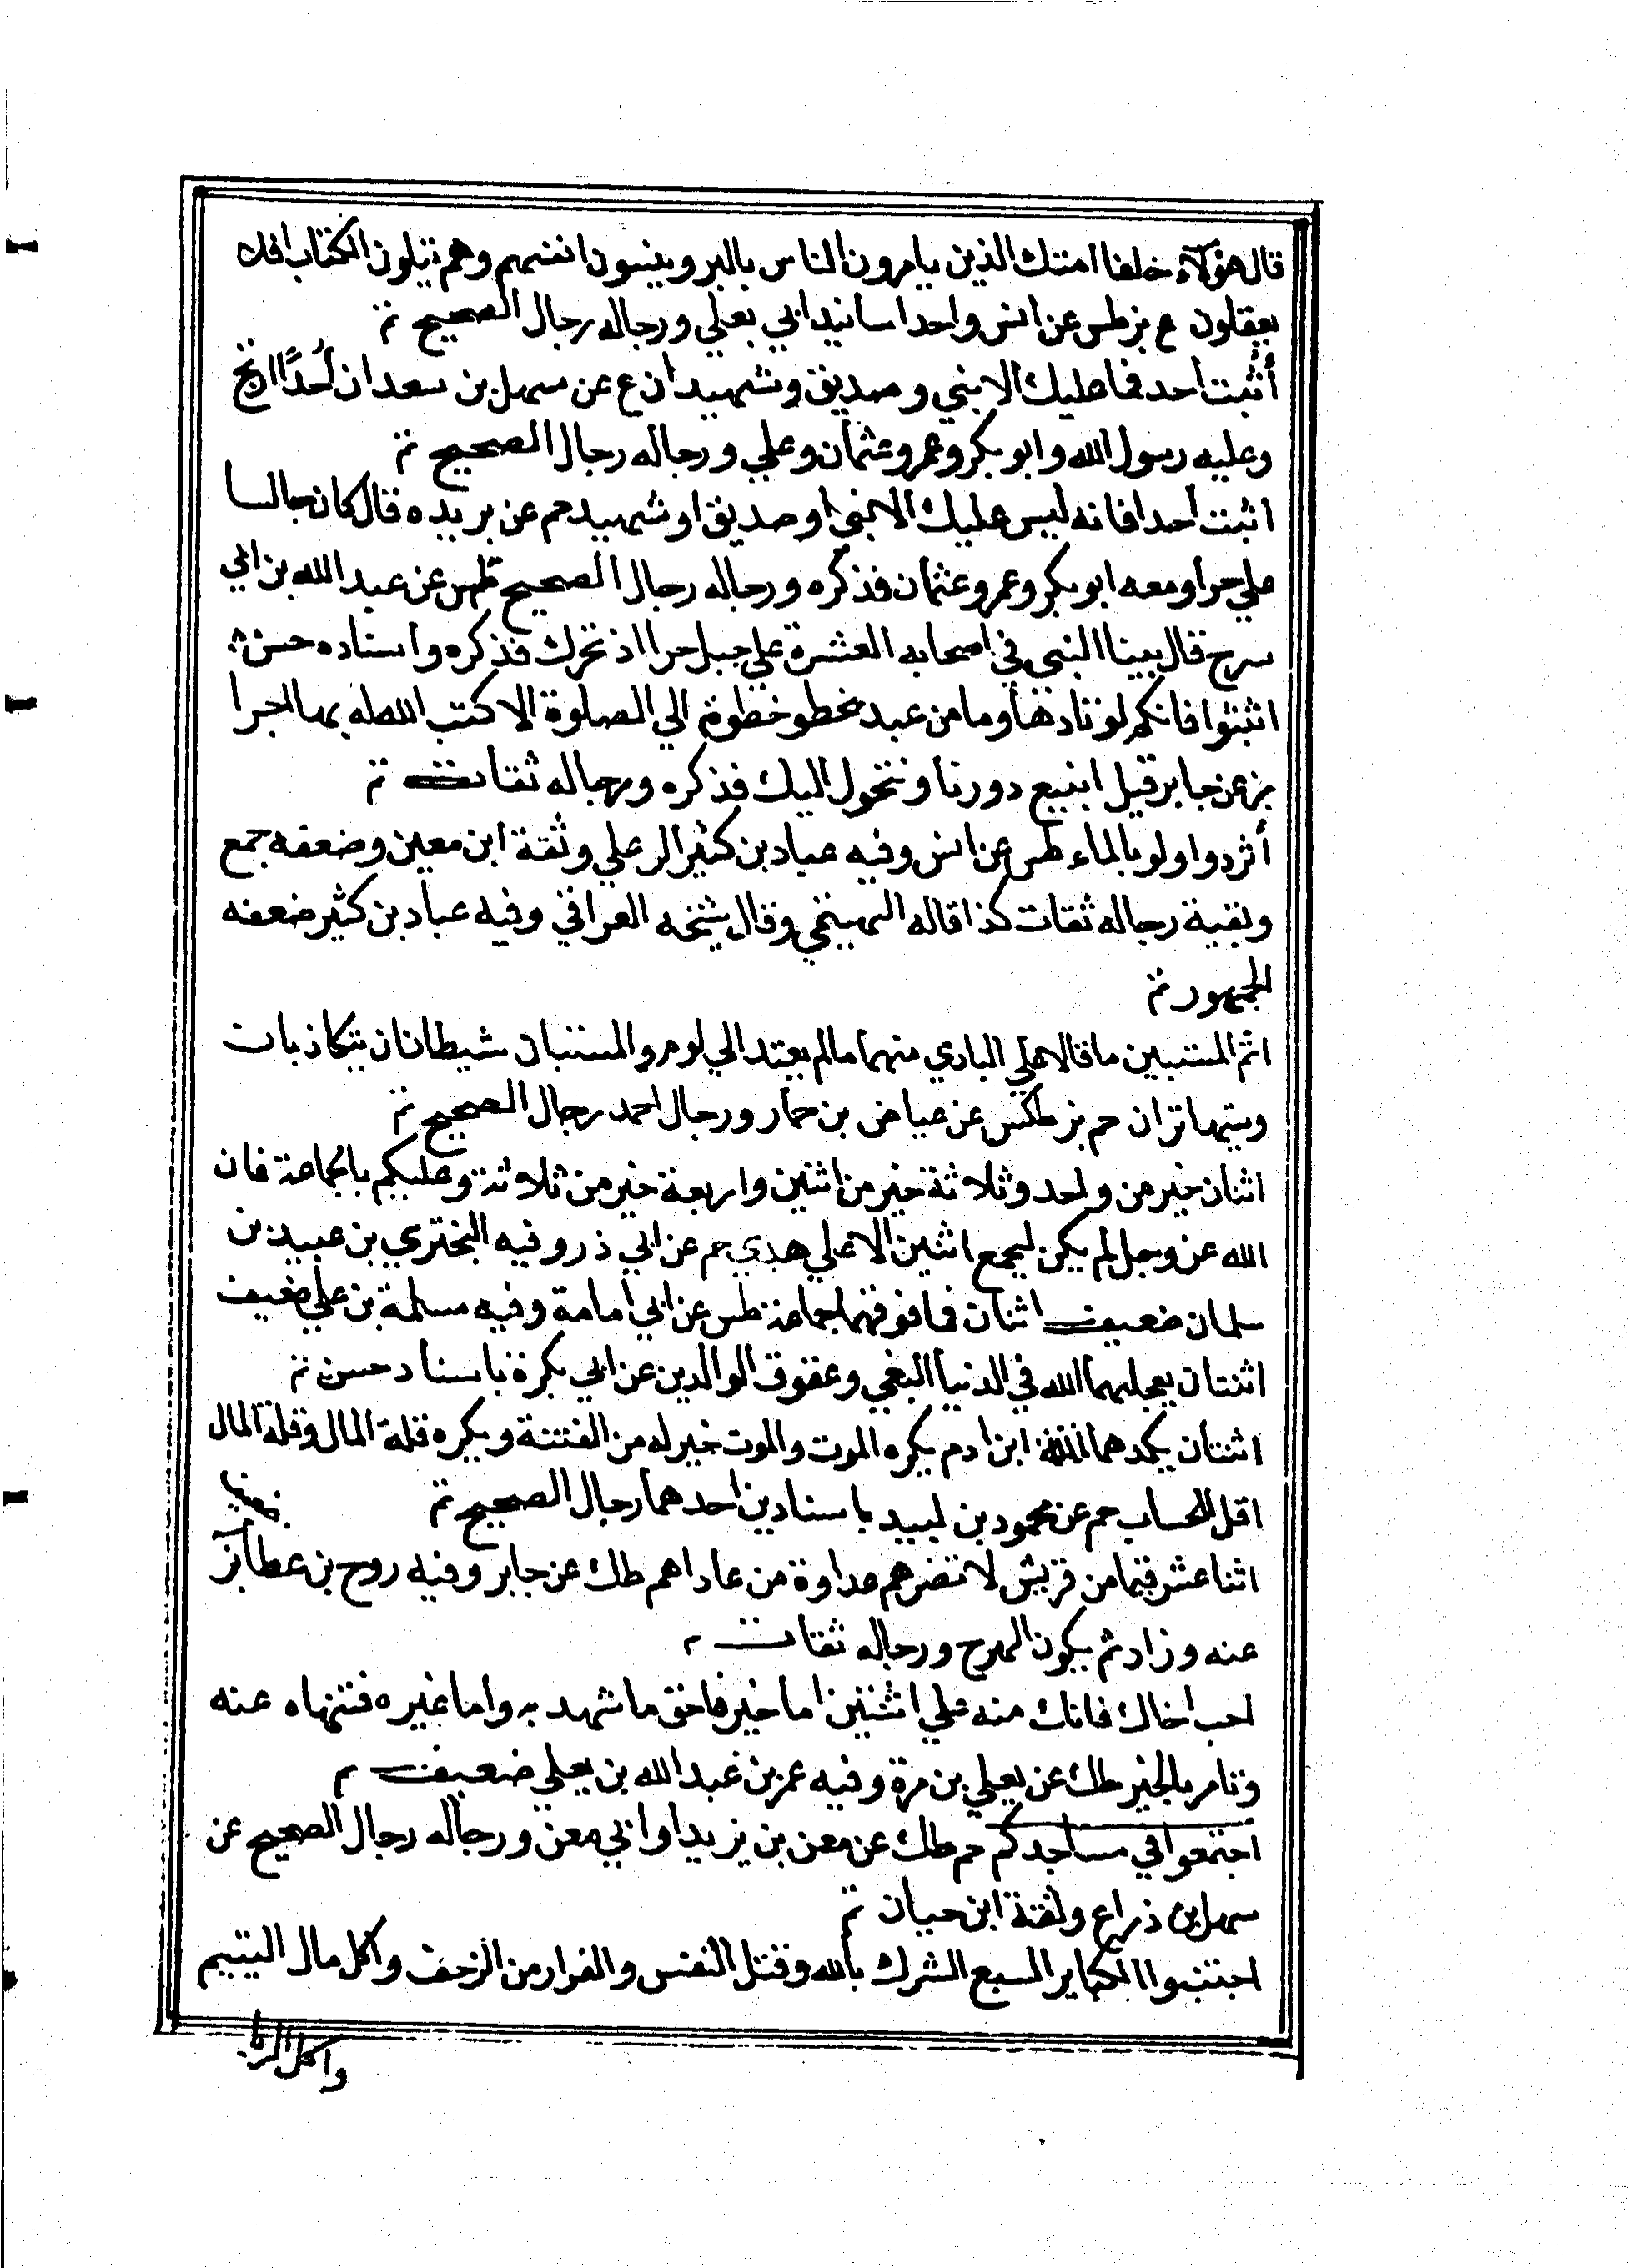 قال هؤلآء خلفا امتك الذين يامرون الناس بالبر وينسون انفسهم وهم يتلون الكتاب افلا
يعقلون ع بز طس عن انس واحد اسانيد ابي يعلي ورجاله رجال الصحيح تم
أثبت احد فما عليك الا نبي وصديق وشهيدان ع عن سهل بن سعد ان أحدًا ارتج
وعليه رسول الله وابو بكر وعمر وعثمان وعلي ورجاله رجال الصحيح تم
اثبت احد افانه ليس عليك الا نبي او صديق او شهيد حم عن بريده قال كان جالسا
علي حرا ومعه ابو بكر وعمر وعثمان فذكره ورجاله رجال الصحيح طس عن عبد الله بن ابي
سرح قال بينا النبي في اصحابه العشرة علي جبل حرا اذ تحرك فذكره واسناده حسن
اثبتوا فانكم لوتادها وما من عبد يخطو خطوة الي الصلوة الا كتب الله له بها اجرا
بز عن جابر قيل ابنيع دورنا ونتحول اليك فذكره ورجاله ثقات تم
أثردوا ولو بالماء طس عن انس وفيه عباد بن كثير الرعلي وثقة ابن معين وضعفه جمع
وبقية رجاله ثقات كذا قاله الهيتمي وقال شيخه العراقي وفيه عباد بن كثير ضعفه
الجمهور تم
اثم المستبين ما قالا علي البادي منهما مالم يعتد الي لوم والمستبان شيطانان يتكاذبات
ويتهاتران حم بز طكس عن عياض بن حمار ورجال احمد رجال الصحيح تم
اثنان خير من واحد وثلاثة خير من اثنين واربعة خير من ثلاثة وعليكم بالجماعة فان
الله عز وجل لم يكن ليجمع اثنين الا علي هدي حم عن ابي ذر وفيه البختري بن عبيد بن
سلمان ضعيف اثنان فما فوقهما جماعة طس عن ابي امامة وفيه مسلمة بن علي ضعيف
اثنتان يعجلهما الله في الدنيا البغي وعقوق الوالدين عن ابي بكرة باسناد حسن تم
اثنتان يكرهما ابن ادم يكره الموت والموت خير له من الفتنة ويكره قلة المال وقلة المال
اقل للحساب حم عن محمود بن لبيد باسنادين احدهما رجال الصحيح تم
ضعيف
اثنا عشر قيما من قريش لا تضرهم عداوة من عاداهم طك عن جابر وفيه روح بن عطا بز
عنه وزاد ثم يكون الهرج ورجاله ثقات م
احب اخاك فانك منه علي اثنتين اما خير فاحق ما شهد به واما غيره فتنهاه عنه
وتامر بالخير طك عن يعلي بن مرة وفيه عمر بن عبد الله بن يعلي ضعيف م
اجتمعوا في مساجدكم حم طك عن معن بن يزيد او ابي معن ورجاله رجال الصحيح عن
سهل بن ذراع وثقة ابن حبان تم
اجتنبوا الكباير السبع الشرك بالله وقتل النفس والفرار من الزحف واكل مال اليتيم
واكل الربا